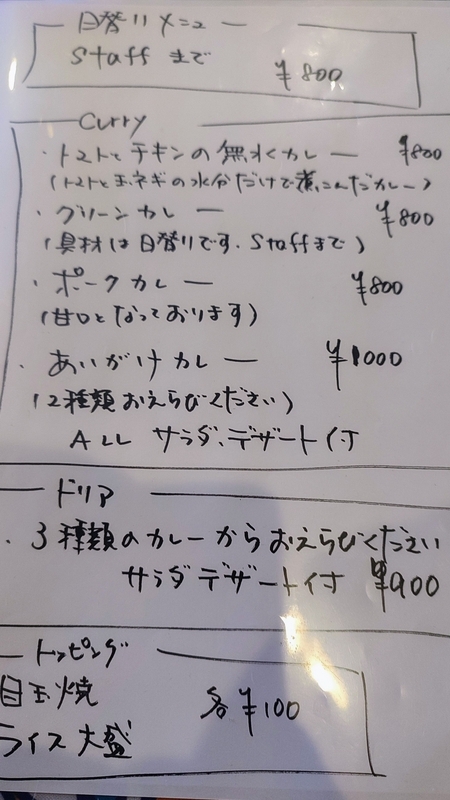 日替りメニュー
Staff まで ¥800
Curry
・トマトとチキンの無水カレー ¥800
(トマトと玉ネギの水分だけで煮こんだカレー)
・グリーンカレー ¥800
(具材は日替りです。Staffまで)
・ポークカレー ¥800
(甘口となっております)
・あいがけカレー ¥1000
(2種類おえらびください)
ALL サラダ、デザート付
ドリア
・3種類のカレーからおえらびください
サラダデザート付 ¥900
トッピング
目玉焼 各¥100
ライス大盛